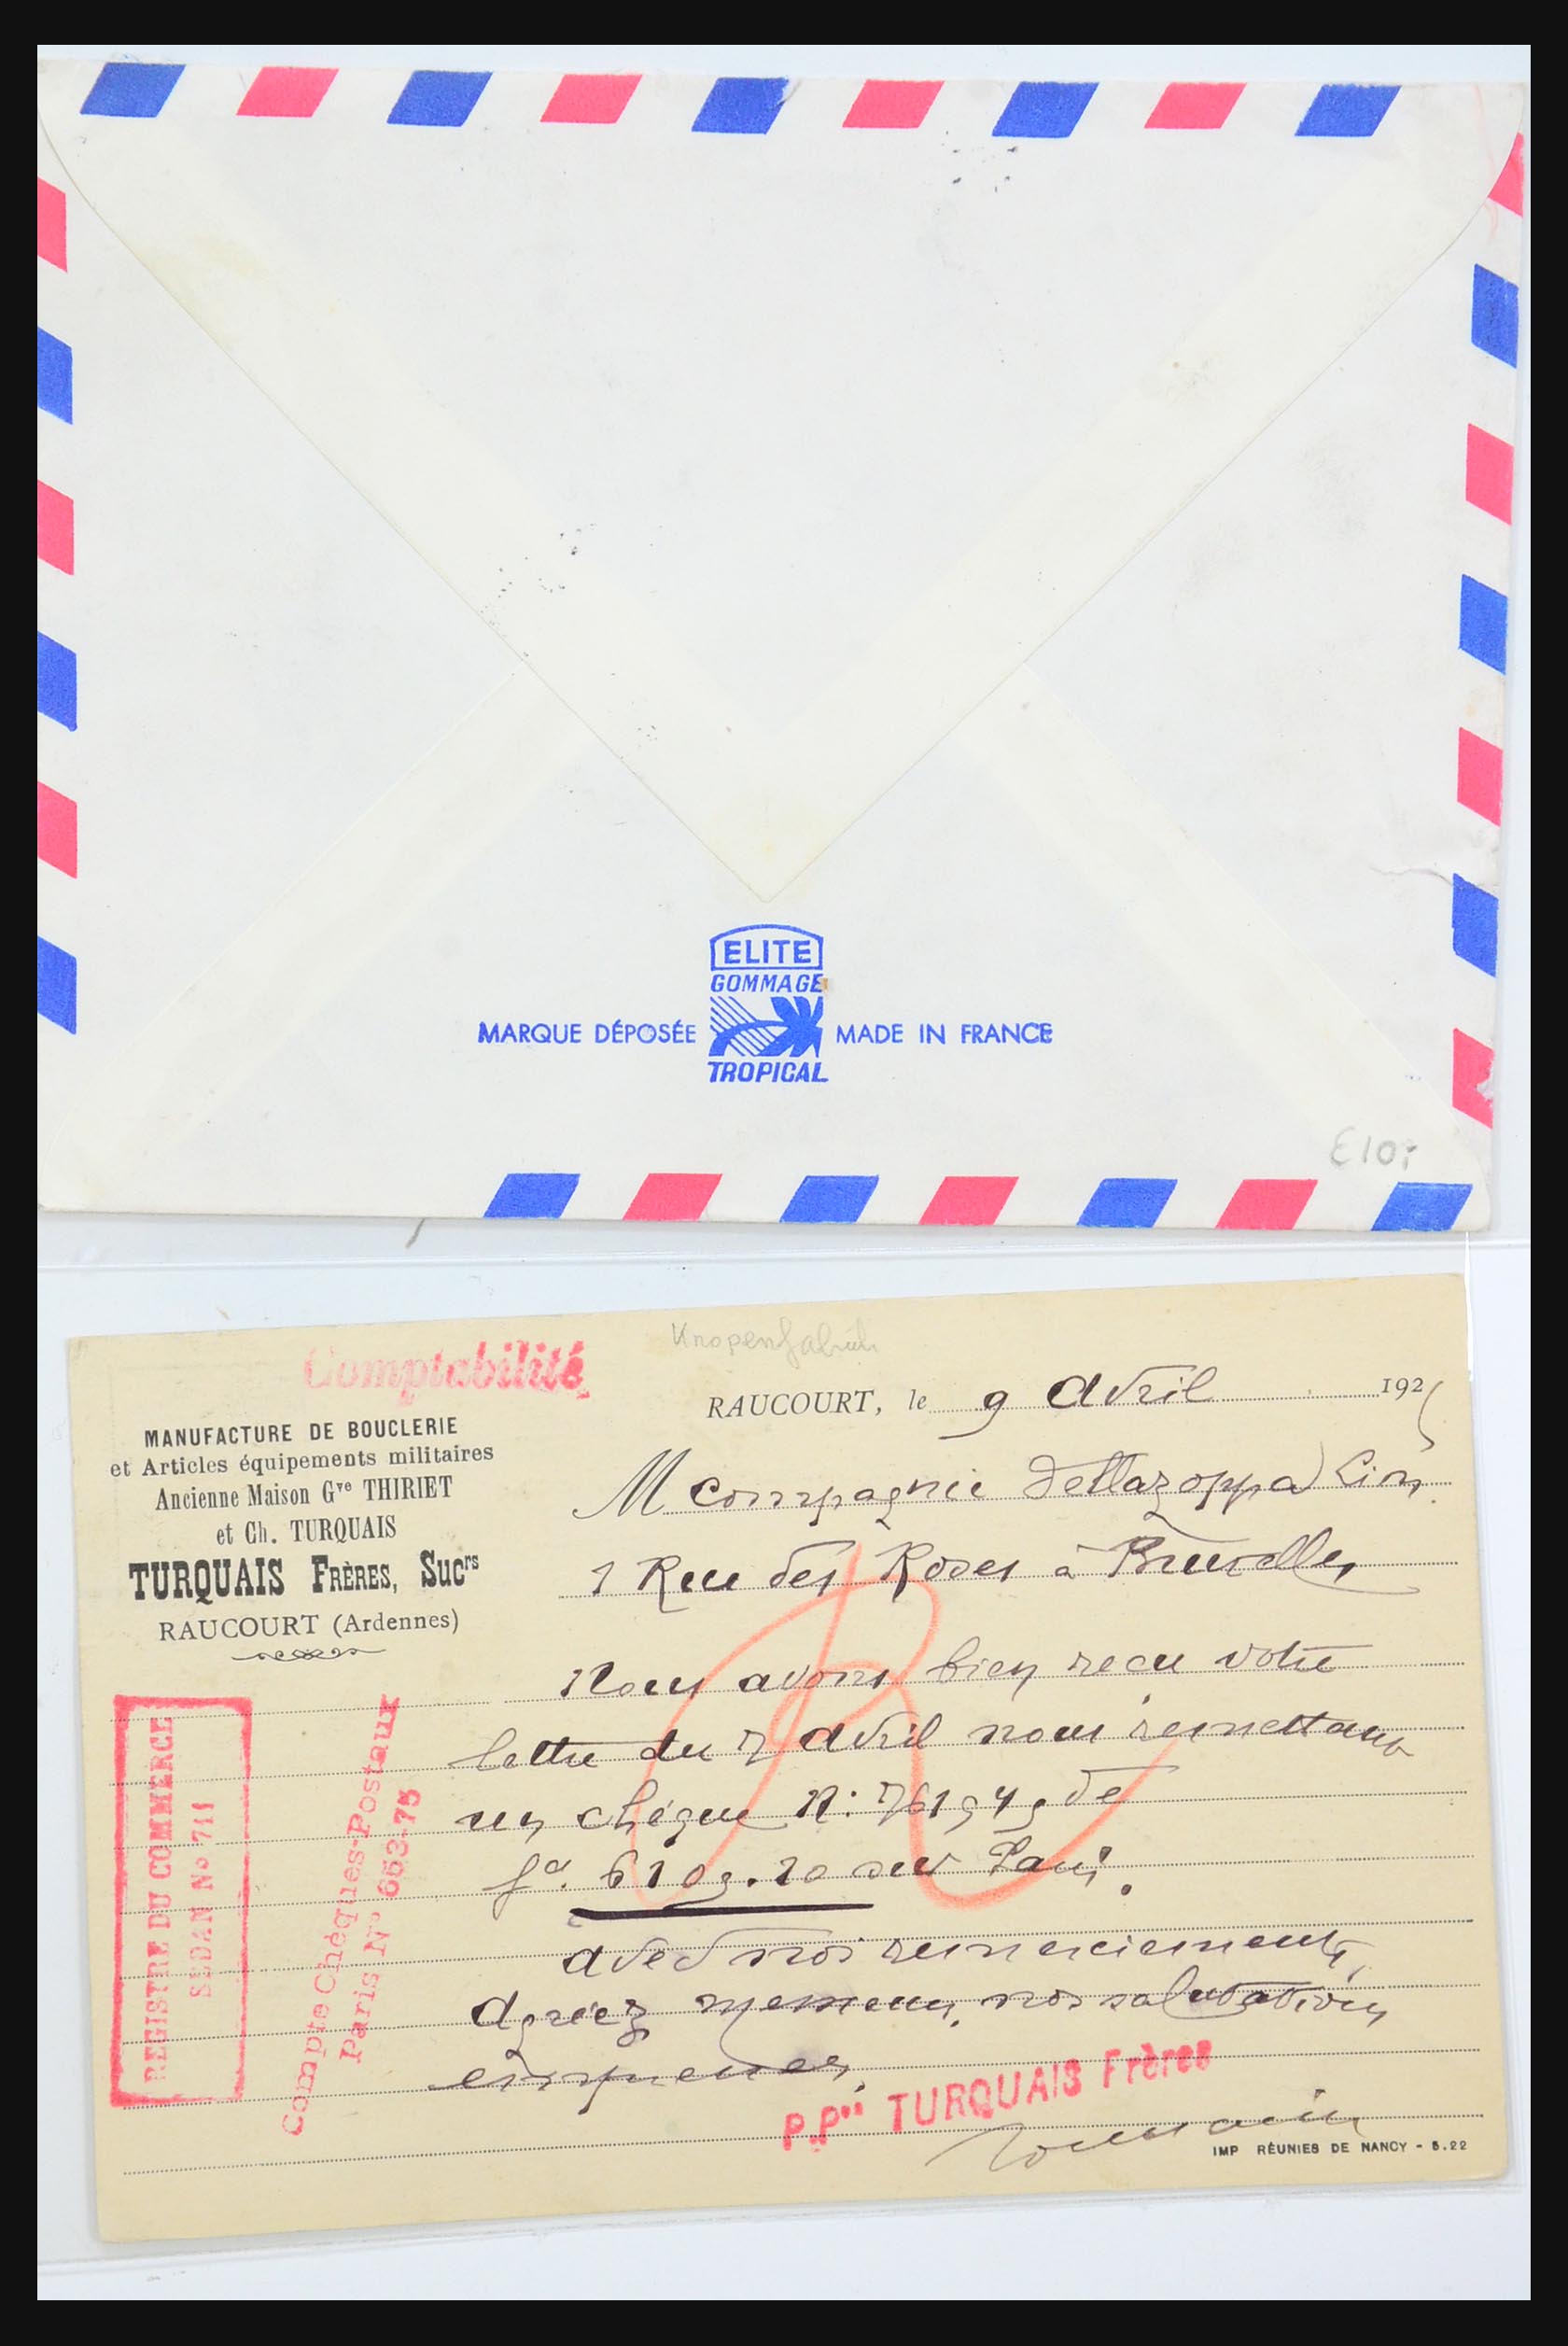 ELITE
GOMMAGE
MARQUE DÉPOSÉE MADE IN FRANCE
TROPICAL
£10,-
Comptabilité
MANUFACTURE DE BOUCLERIE
et Articles équipements militaires
Ancienne Maison Gve THIRIET
et Ch. TURQUAIS
TURQUAIS FRÈRES, Sucrs
RAUCOURT (Ardennes)
REGISTRE DU COMMERCE
SEDAN No 711
Compte Chèques-Postaux
Paris No 653-75
RAUCOURT, le 9 Avril 192
M Compagnie
1 Rue des Roses à Bruxelles
Nous avons bien reçu votre
lettre du 7 Avril nous remettant
un chèque N: de
sur Paris.
Avec nos remerciements,
Agréez Messieurs, nos salutations
empressées.
P.Pon TURQUAIS Frères
IMP RÉUNIES DE NANCY - 5.22